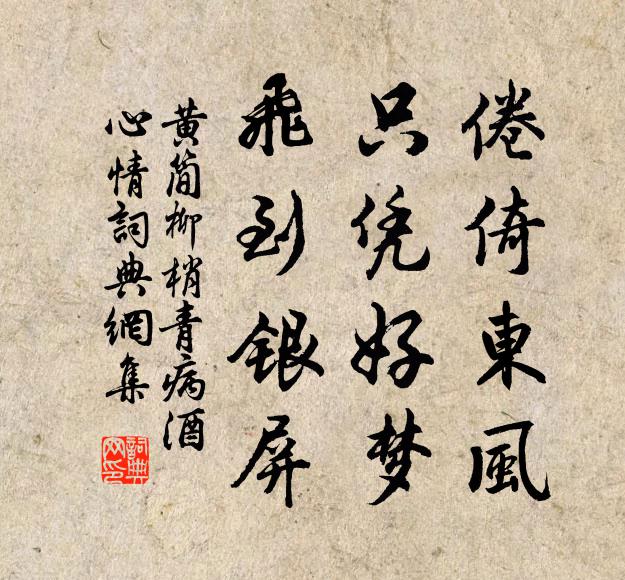 倦倚東風
只凭好梦
飛到銀屏
黄简柳梢青病酒
心情詞典網集
詞典
网印